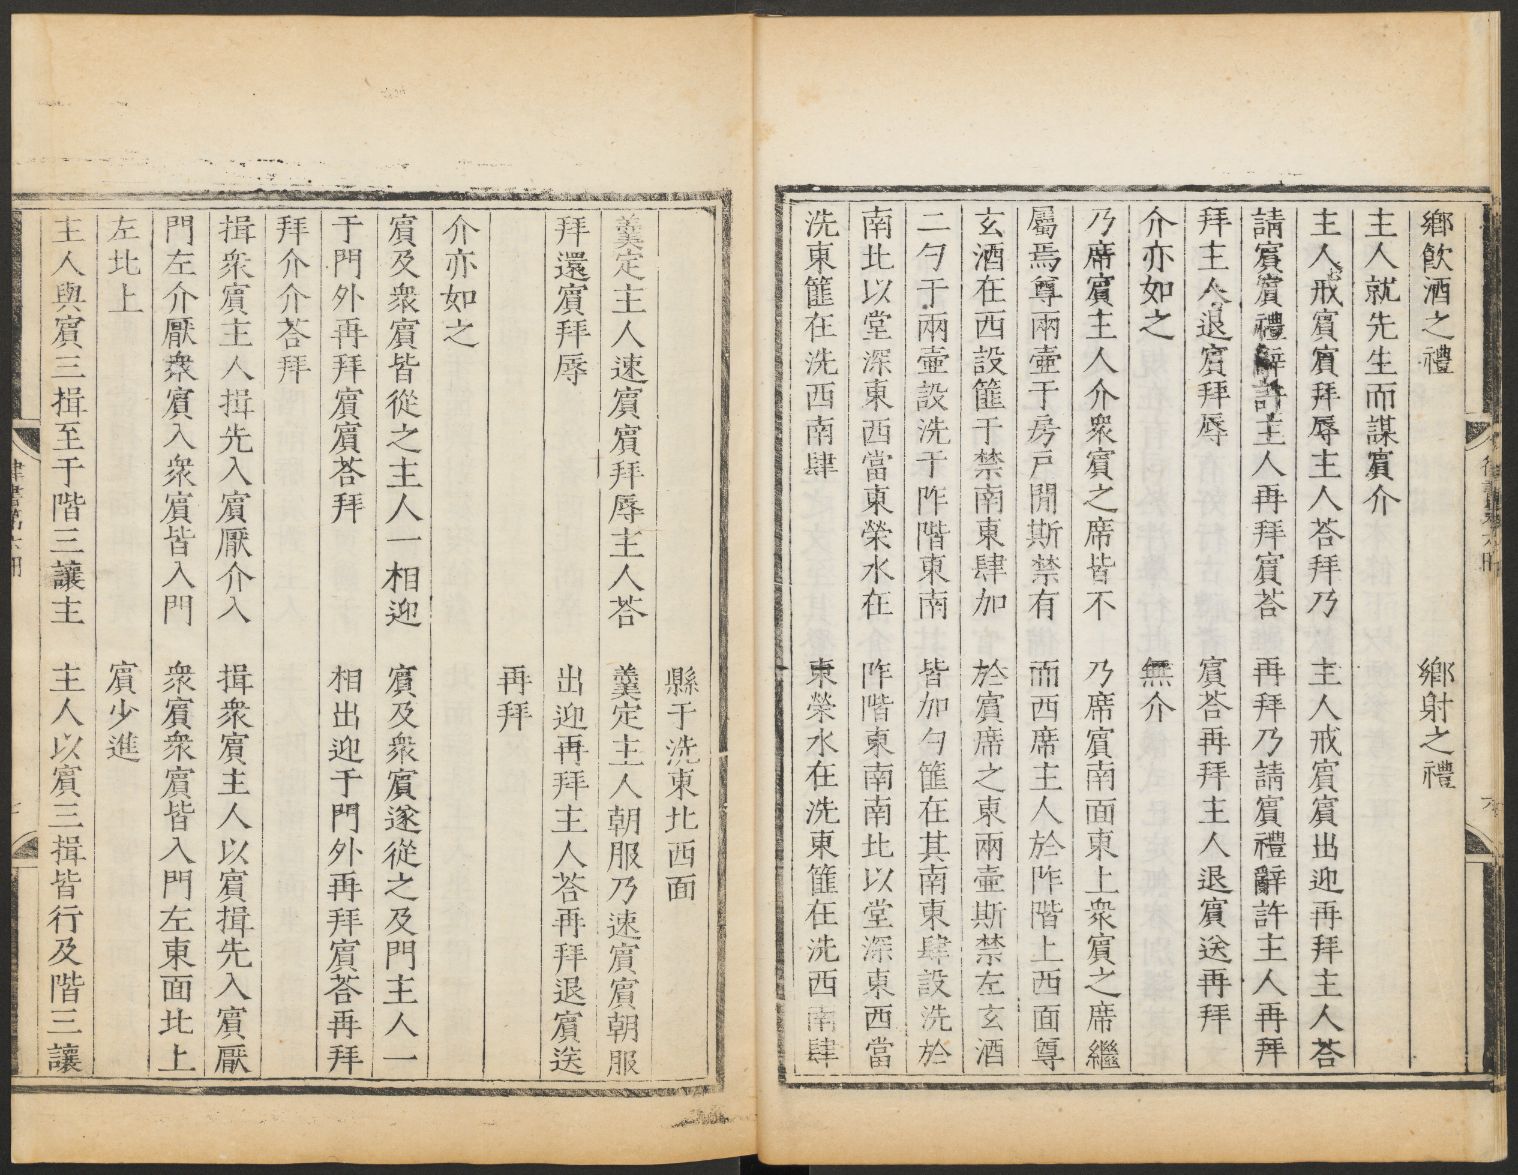 鄉飲酒之禮 鄉射之禮
主人就先生而謀賓介
主人戒賓賓拜辱主人荅拜乃 主人戒賓賓出迎再拜主人荅
請賓賓禮辭許主人再拜賓荅 再拜乃請賓禮辭許主人再拜
拜主人退賓拜辱 賓荅再拜主人退賓送再拜
介亦如之 無介
乃席賓主人介衆賓之席皆不 乃席賓南面東上衆賓之席繼
屬焉尊兩壷于房戶閒斯禁有 而西席主人於阼階上西面尊
玄酒在西設篚于禁南東肆加 於賓席之東兩壷斯禁左玄酒
二勺于兩壷設洗于阼階東南 皆加勺篚在其南東肆設洗於
南北以堂深東西當東榮水在 阼階東南南北以堂深東西當
洗東篚在洗西南肆 東榮水在洗東篚在洗西南肆
縣于洗東北西面
羹定主人速賓賓拜辱主人荅 羹定主人朝服乃速賓賓朝服
拜還賓拜辱 出迎再拜主人荅再拜退賓送
再拜
介亦如之
賓及衆賓皆從之主人一相迎 賓及衆賓遂從之及門主人一
于門外再拜賓賓荅拜 相出迎于門外再拜賓荅再拜
拜介介荅拜
揖衆賓主人揖先入賓厭介入 揖衆賓主人以賓揖先入賓厭
門左介厭衆賓入衆賓皆入門 衆賓衆賓皆入門左東面北上
左北上 賓少進
主人與賓三揖至于階三讓主 主人以賓三揖皆行及階三讓